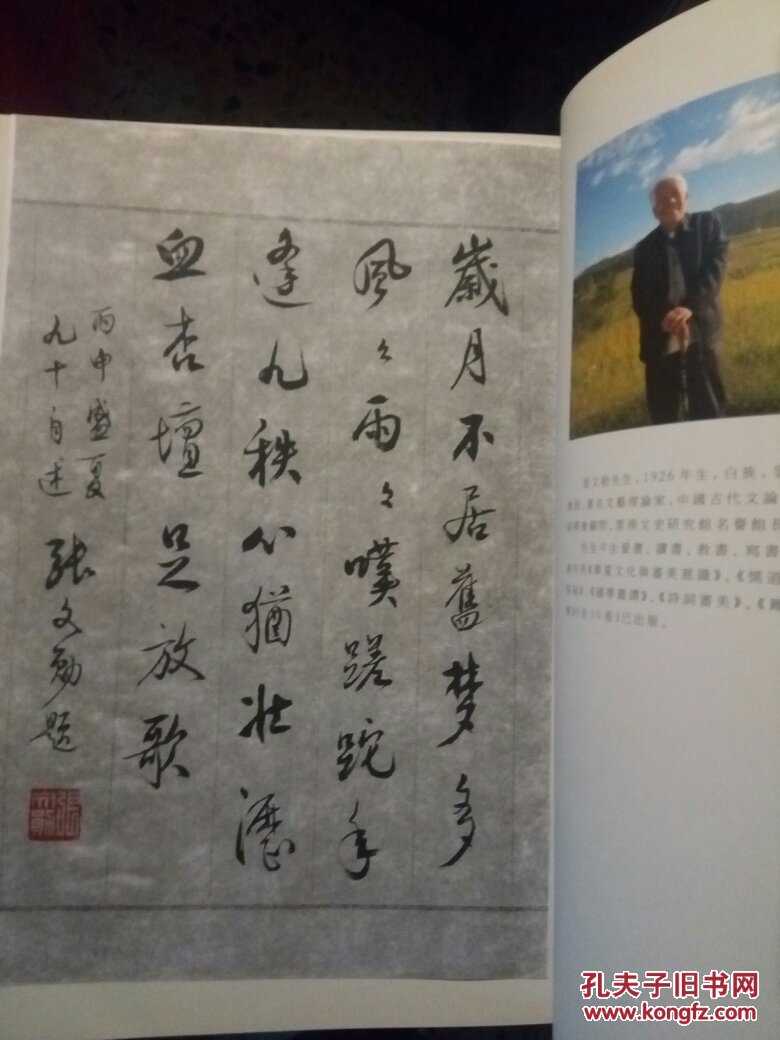 歲月不居舊梦多
風々雨々嘆蹉跎年
逢九秩心猶壯瀝
血杏壇足放歌
丙申盛夏
九十自述
张文勛题
先生,1926年生,白族,
教授,著名文藝理論家,中國古代文論
學會顧問,雲南文史研究館名譽館長
先生平生愛書、讀書、教書、寫書
《華夏文化與審美意識》、《儒道
《國學叢譚》、《詩詞審美》、
卷)已出版。
孔夫子旧书网
www.kongfz.com